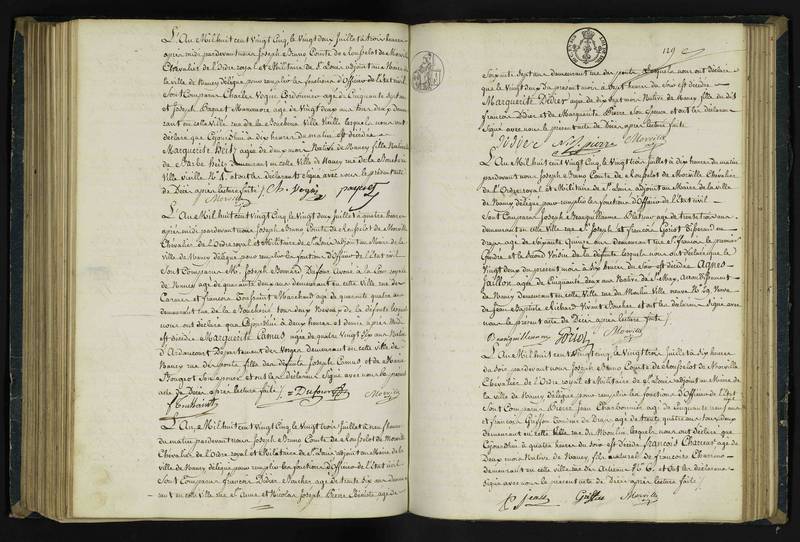 L'An Mil huit cent Vingt Cinq, le Vingt deux Juillet à trois heures
après midi pardevant nous Joseph Bruno Comte de Rousselot de Morville
Chevalier de l'Ordre royal et Militaire de St Louis adjoint au Maire de
la ville de Nancy délégué pour remplir les fonctions d'Officier de l'état civil
Sont Comparus Charles Vogin Cordonnier agé de Cinquante sept ans
et Joseph Paquet Manœuvre agé de Vingt deux ans tous deux demeu-
rant en cette Ville rue de la Boucherie Ville Vieille lesquels nous ont
déclaré que Cejourd'hui à dix heures du matin est décédée
Marguerite agée de deux mois Native de Nancy fille Naturelle
de Barbe demeurant en cette Ville de Nancy rue de la Boucherie
Ville vieille et ont les déclarans signé avec nous le présent acte
de Décès après lecture faite /. Ch. Vogin paquet
Morville
L'An Mil huit cent Vingt Cinq le Vingt deux Juillet à quatre heures
après midi pardevant nous Joseph Bruno Comte de Rousselot de Morville
Chevalier de l'Ordre royal et Militaire de St Louis adjoint au Maire de la
ville de Nancy délégué pour remplir les fonctions d'Officier de l'état civil
Sont Comparus Mr. Joseph Bernard Dufour Avoué à la Cour royale
de Nancy agé de quarante deux ans demeurant en cette Ville rue des
Carmes et francois Toussaint Marchand agé de quarante quatre ans
demeurant rue de la Boucherie tous deux Neveux de la défunte lesquels
nous ont déclaré que Cejourd'hui à deux heures et demie après Midi
est décédée Marguerite Camus agée de quatre Vingt dix ans Native
d'Ardancourt Département des Vosges demeurant en cette ville de
Nancy rue des ponts fille des défunts Joseph Camus et de Marie
Bougeot Son épouse et ont les déclarans Signé avec nous le présent
acte de Décès après lecture faite /.
f Toussaint Dufour Morville
L'An Mil huit cent Vingt Cinq le Vingt trois Juillet à neuf heures
du matin pardevant nous Joseph Bruno Comte de Rousselot de Morville
Chevalier de l'Ordre royal et Militaire de St Louis adjoint au Maire de la
ville de Nancy délégué pour remplir les fonctions d'Officier de l'état civil
Sont Comparus francois Didier agé de trente six ans demeu-
rant en cette Ville rue St Anne et Nicolas Joseph Pierre agé de
129
Soixante sept ans demeurant rue des ponts lesquels nous ont déclaré
que le Vingt deux du présent mois à sept heures du Soir est décédée
Marguerite Didier agée de dix sept mois Native de Nancy fille du dit
francois Didier et de Marguerite Pierre Son Epouse et ont les déclarans
Signé avec nous le présent acte de Décès après lecture faite
Didier N J pierre Morville
L'An Mil huit cent Vingt Cinq, le Vingt trois Juillet à dix heures du matin
pardevant nous Joseph Bruno Comte de Rousselot de Morville Chevalier
de l'Ordre royal et Militaire de St Louis adjoint au Maire de la ville
de Nancy délégué pour remplir les fonctions d'Officier de l'état civil
Sont Comparus Joseph agé de trente trois ans
demeurant en cette Ville rue St Joseph et francois Goriot
agé de Soixante Quinze ans demeurant rue St francois le premier
Gendre et le second Voisin de la défunte lesquels nous ont déclaré que le
Vingt deux du présent mois à Six heures du Soir est décédée Agnès
agée de Cinquante deux ans Native de St Max, Arrondissement
de Nancy demeurant en cette Ville rue du Moulin Ville neuve
de Jean Baptiste Richard Vivant Boucher et ont les déclarans Signé avec
nous le présent acte de Décès après lecture faite /.
Goriot Morville
L'An Mil huit cent Vingt Cinq, le Vingt trois Juillet à dix heures
du soir pardevant nous Joseph Bruno Comte de Rousselot de Morville
Chevalier de l'Ordre royal et Militaire de St Louis adjoint au Maire de
la ville de Nancy délégué pour remplir les fonctions d'Officier de l'état
Civil Sont Comparus Pierre Jean Charbonnier agé de Cinquante neuf ans
et francois agé de trente quatre ans tous deux
demeurant en cette Ville rue du Moulin lesquels nous ont déclaré que
Cejourd'hui à quatre heures du soir est décédé francois agé de
Deux mois Natif de Nancy fils naturel de francoise
demeurant en cette Ville rue des Artisans No. 6 et ont les déclarans
Signé avec nous le présent acte de Décès après lecture faite /.
Morville